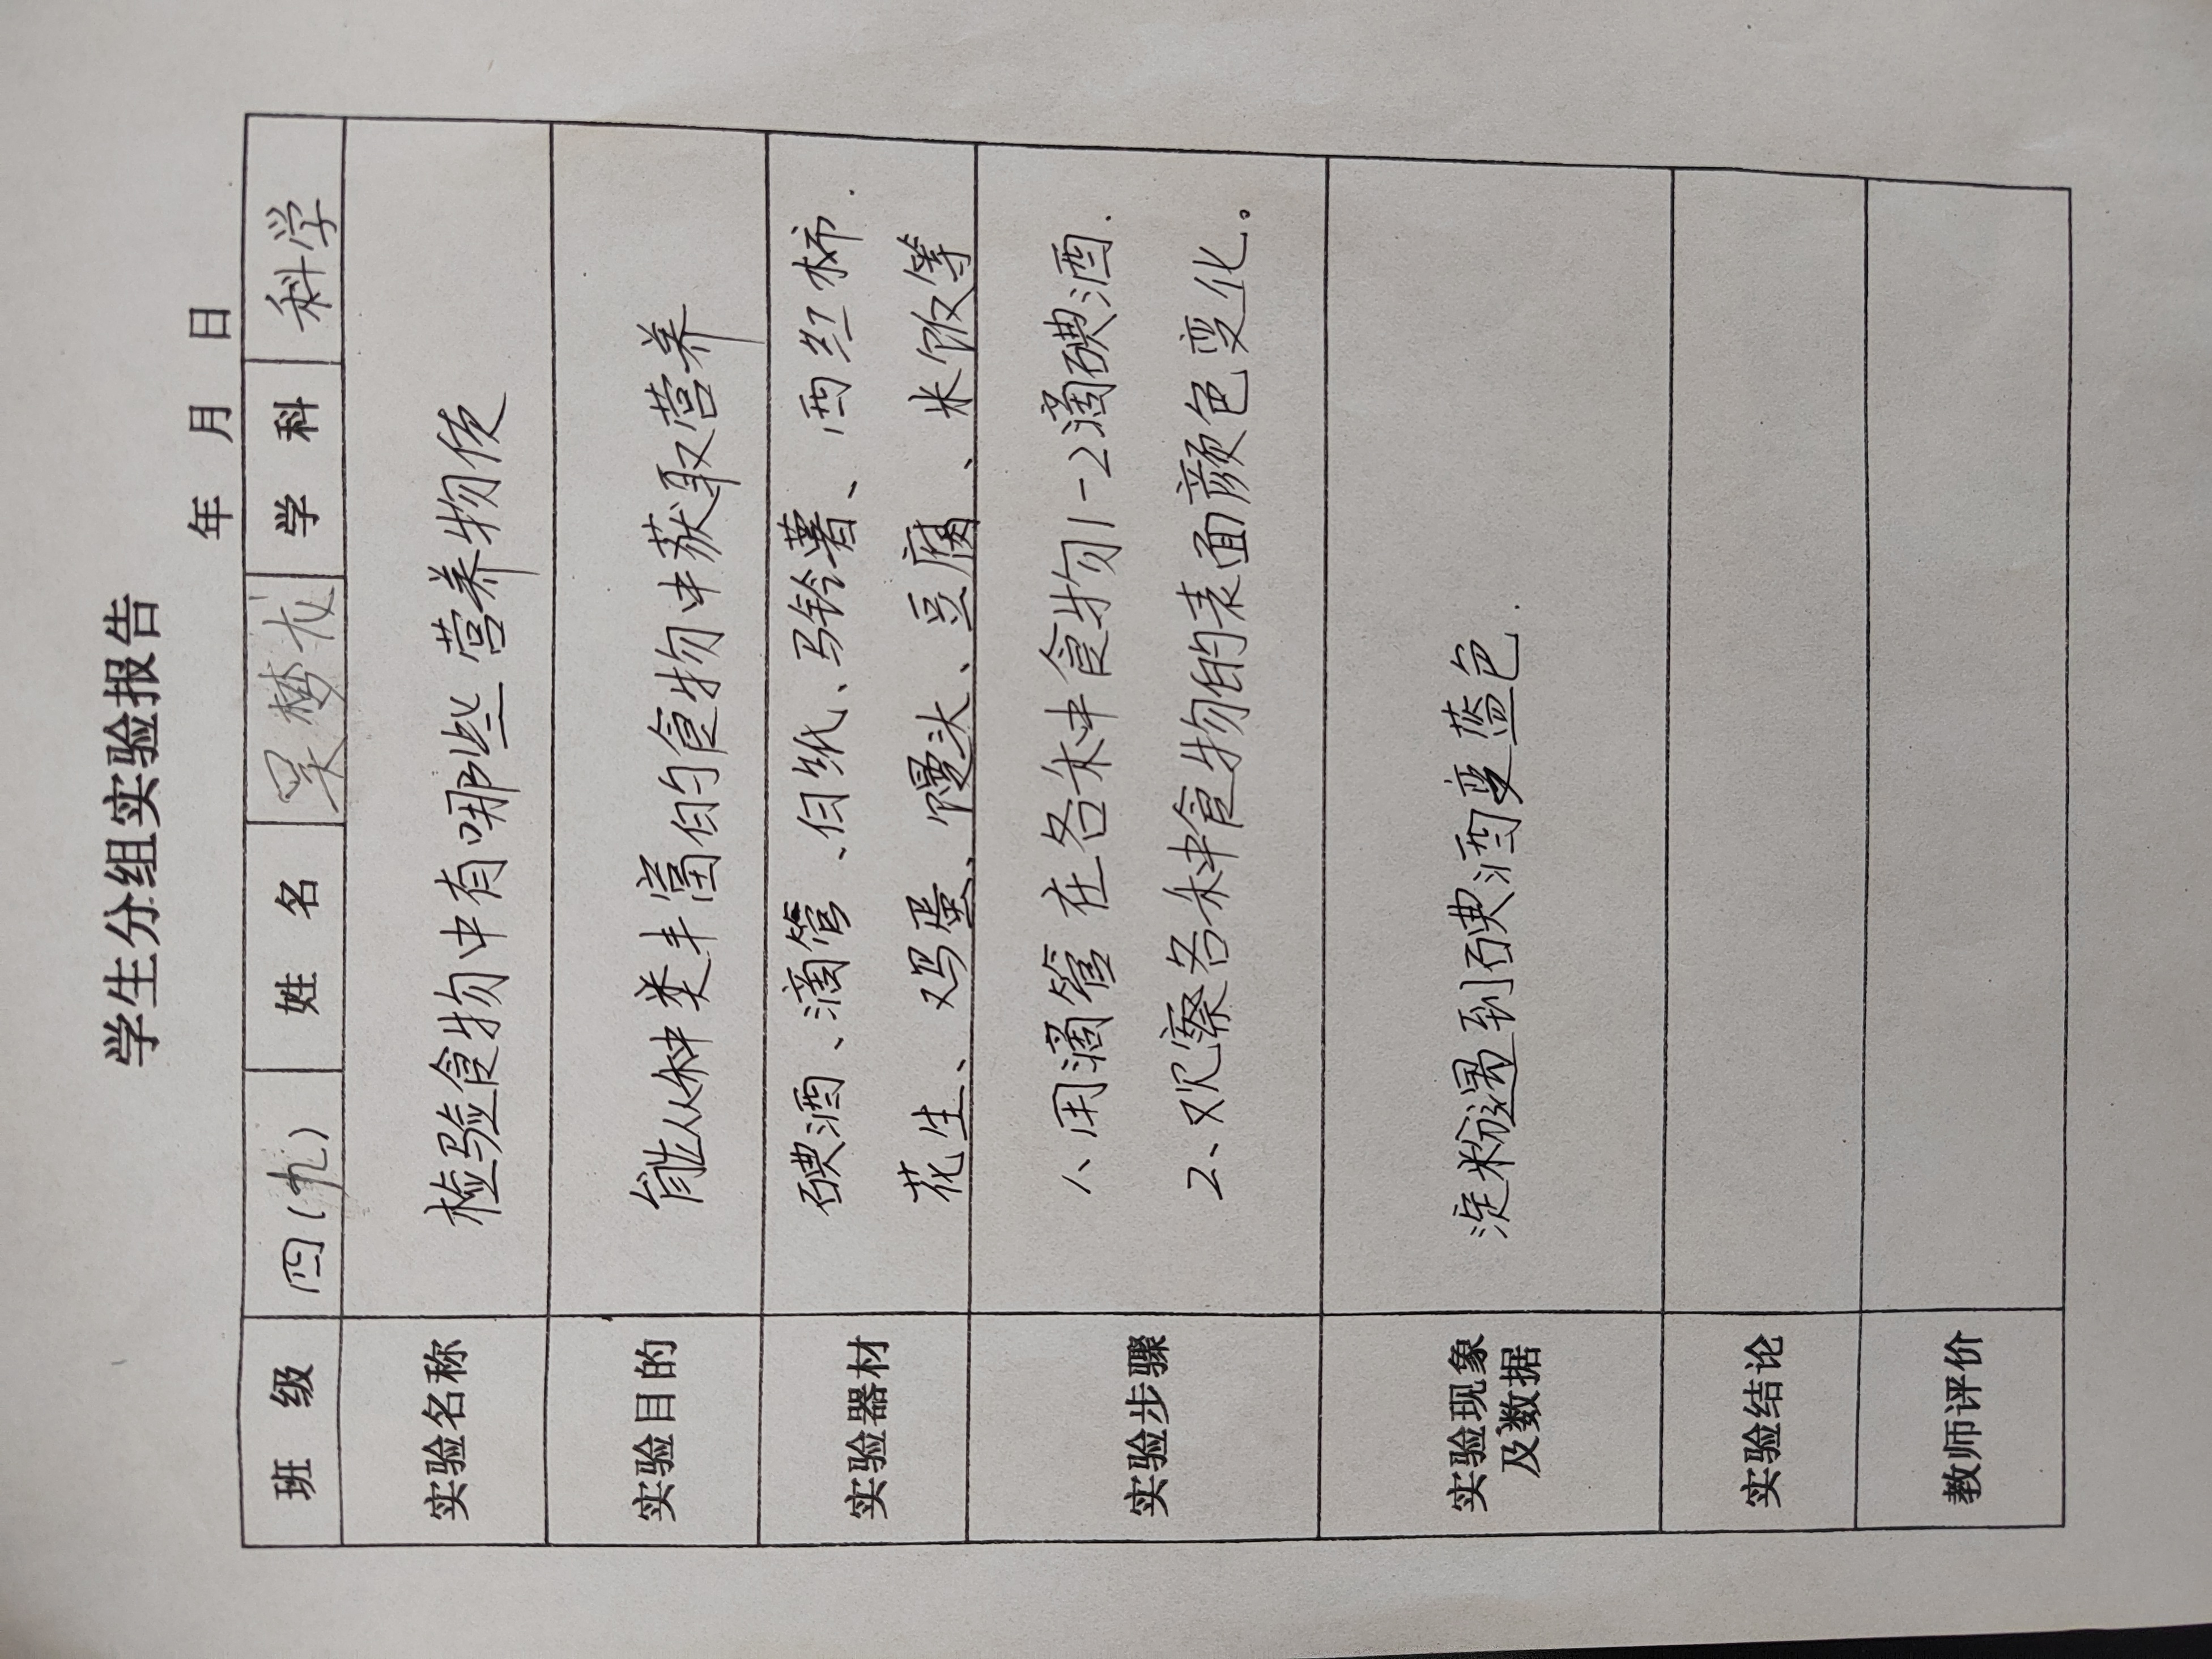 学生分组实验报告
年 月 日
班 级 四(九) 姓 名 吴梦 学 科 科学
实验名称 检验食物中有哪些营养物质
实验目的 能从种类丰富的食物中获取营养
实验器材 碘酒、滴管、白纸、马铃薯、西红柿.
花生、鸡蛋、馒头、豆腐、米饭等
实验步骤 1、用滴管在各种食物1-2滴碘酒.
2、观察各种食物的表面颜色变化。
实验现象
及数据 淀粉遇到碘酒变蓝色.
实验结论
教师评价